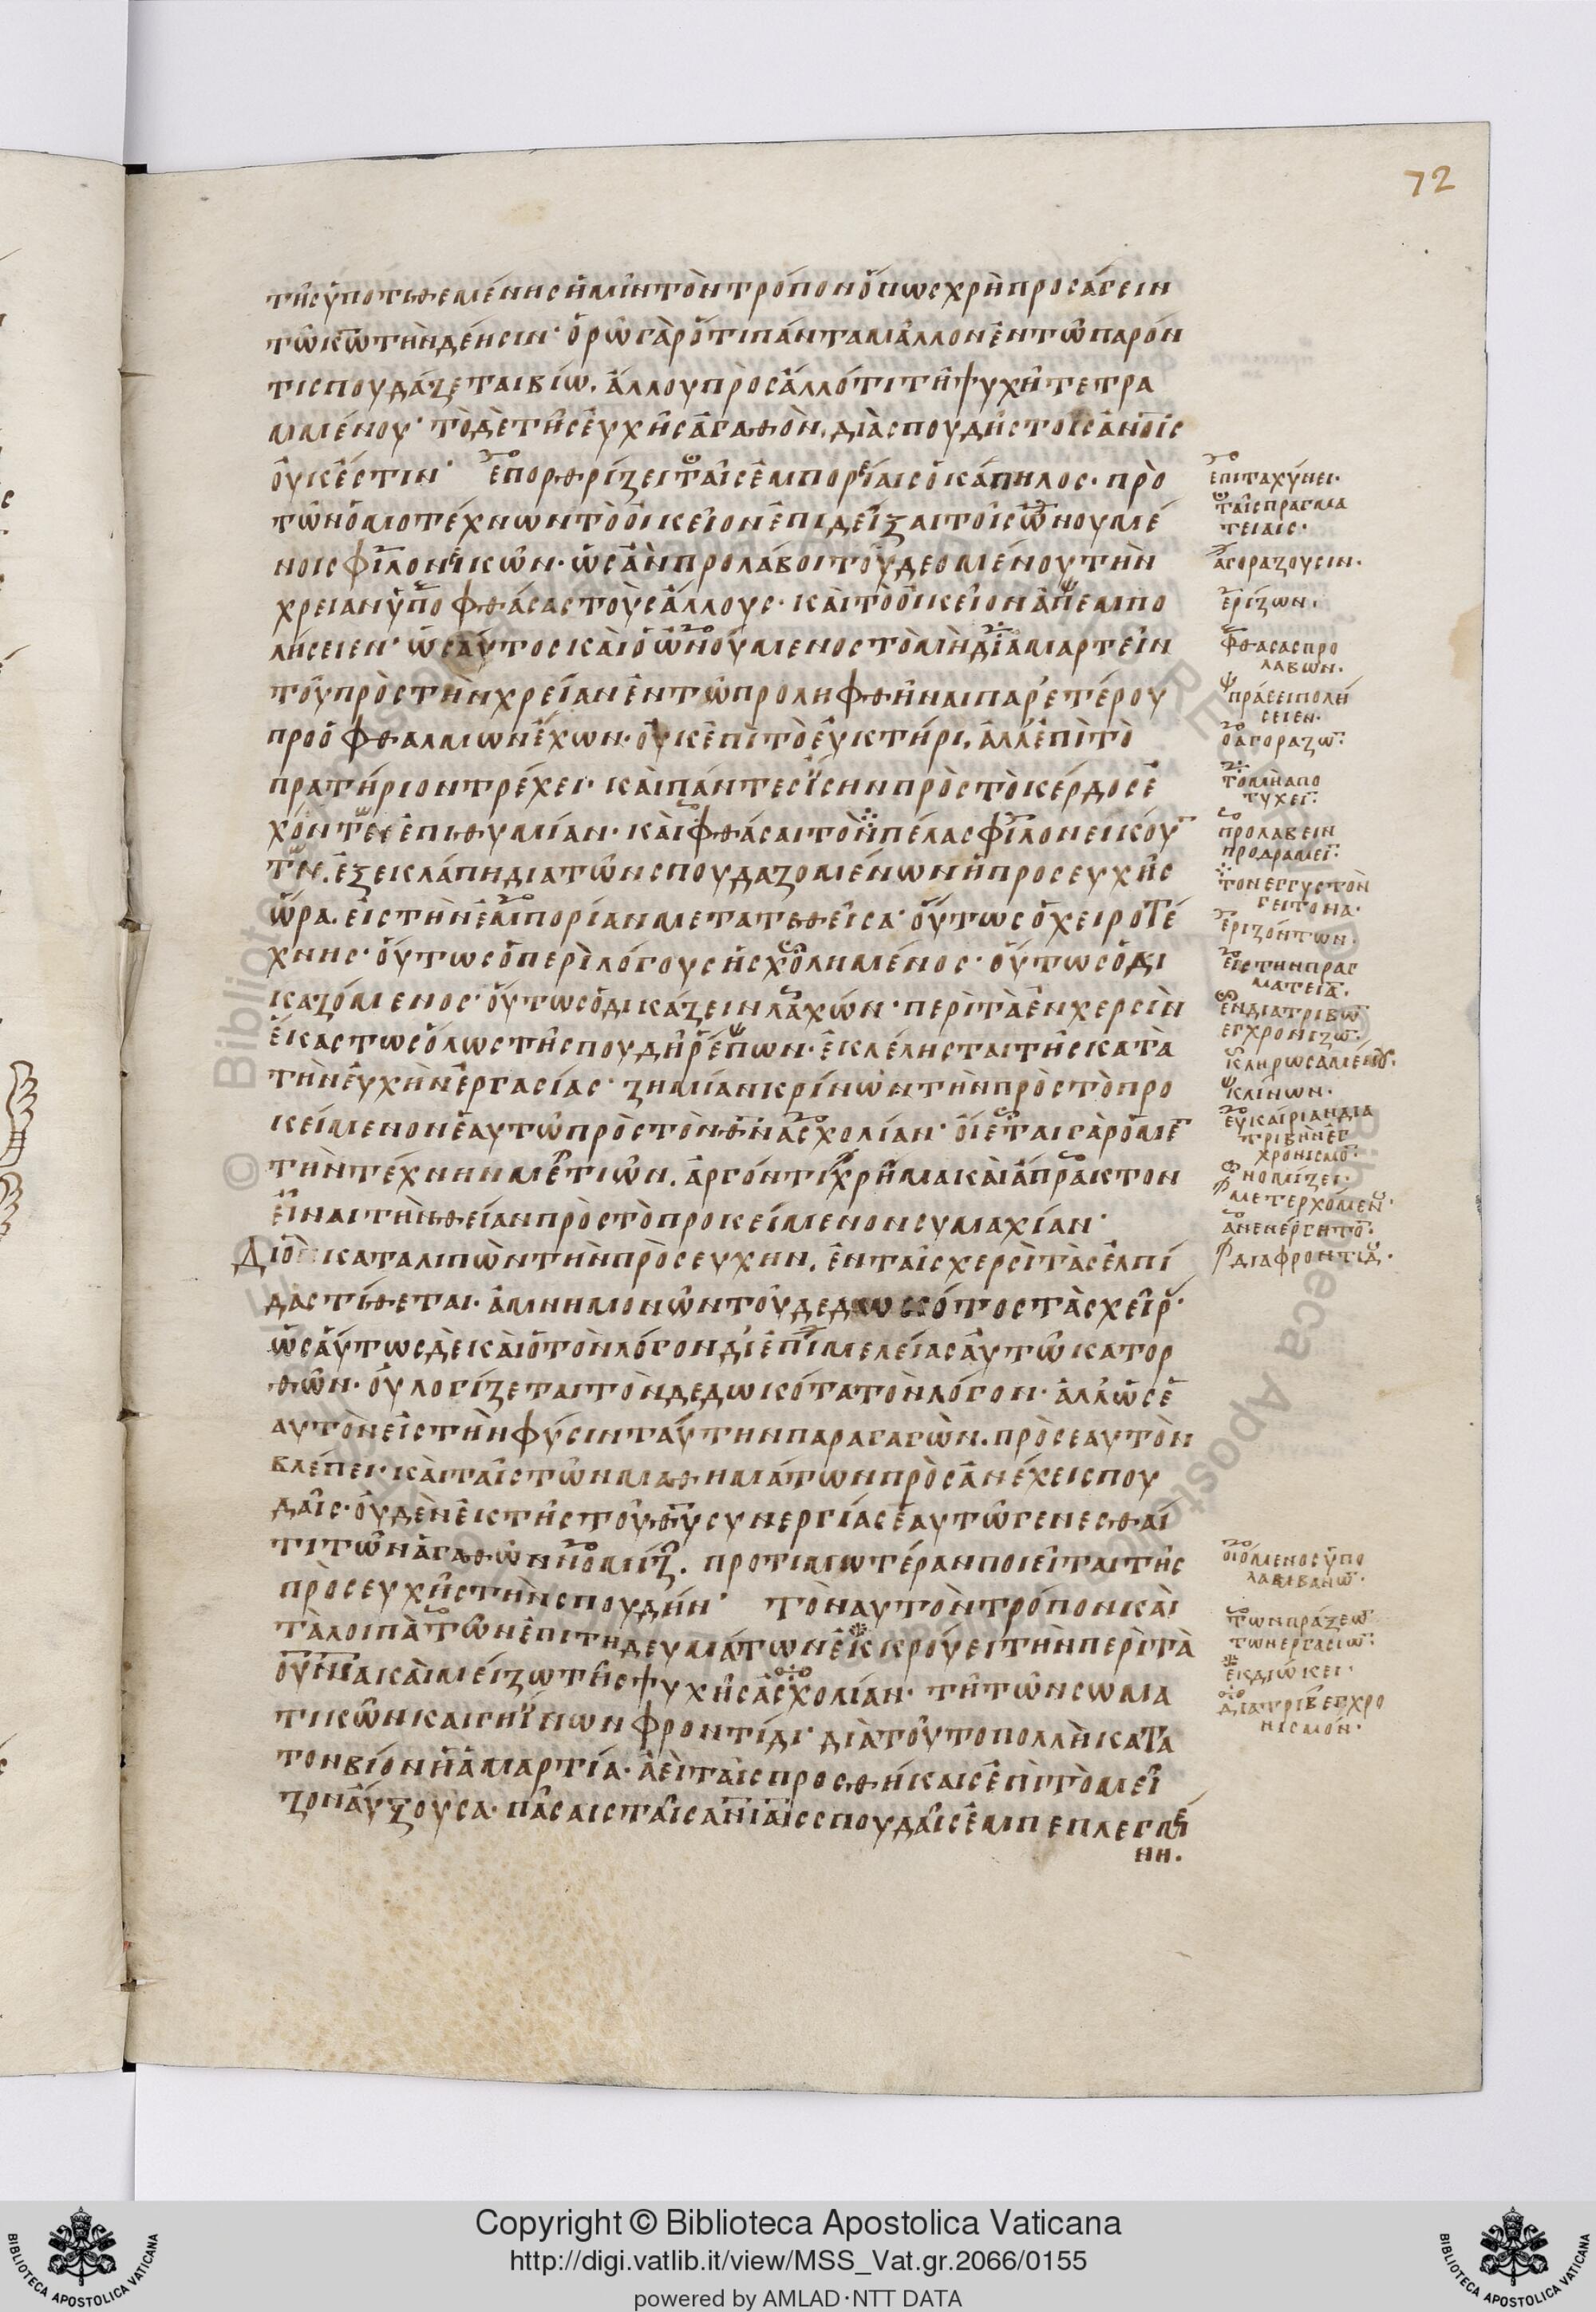 72
τῆς ὑποτιθεμένης ἡμῖν τὸν τρόπον ὅπως χρὴ προσάγειν
τῷ κ̅ω̅ τὴν δέησιν· ὁρῶ γὰρ ὅτι πάντα μᾶλλον ἐν τῷ παρόν
τι σπουδάζεται βίω, ἄλλου πρὸς ἄλλό τι τῆ ψυχῆ τετρα
μμένου· τὸ δὲ τῆς εὐχῆς ἀγαθὸν, διὰ σπουδῆς τοῖς ἀν̅ο̅ι̅ς
οὐκ ἔστιν· ἐπορθρίζει ταῖς ἐμπορείαις ὁ κάπηλος· πρὸ
τῶν ὁμοτέχνων τὸ οἰκεῖον ἐπιδεῖξαι τοῖς ὠνουμέ
νοις φιλονεικῶν· ὡς ἂν προλάβοι τοῦ δεομένου τὴν
χρείαν ὑποφθάσας τοὺς ἄλλους· καὶ τὸ οἰκεῖον ἀπεμπο
λήσειεν· ὡσαύτος καὶ ὁ ὠνούμενος τὸ μὴ διαμαρτεῖν
τοῦ πρὸς τὴν χρείαν ἐν τῶ προληφθῆναι παρ' ἑτέρου
προ ὀφθαλμων ἔχων· οὐκ ἐπὶ τὸ εὐκτήρι, ἀλλ' ἐπὶ τὸ
πρατήριον τρέχει· καὶ πάντες ἴσην πρὸς τὸ κέρδος ἔ
χόντες ἐπιθυμίαν· καὶ φθάσαι τὸν πέλας φιλονεικού
των. ἐξεκλάπη διὰ τῶν σπουδαζομένων ἡ προσευχῆς
ὥρα. εἰς τὴν ἐμπορίαν μετατεθεῖσα· οὕτως ὁ χειροτέ
χνης· οὕτως ὁ περὶ λόγους ἠσχολημένος· οὕτως ὁ δι
καζόμενος· οὕτως ὁ δικάζειν λαχών· περὶ τὰ ἐν χερσὶν
ἕκαστως ὅλως τῆ σπουδῆ ῥέπων· ἐκλέλησται τῆς κατὰ
τὴν εὐχὴν ἐργασίας· ζημίαν κρίνων τὴν πρὸς τὸ προ
κείμενον ἑαυτῶ πρὸς τὸν θ̅ν̅ ἀσχολίαν· οἴεται γὰρ ὁ με
τὴν τέχνην μετιὼν. ἀργόν τι χρῆμα καὶ ἄπρακτον
εἶναι τὴν θείαν πρὸς τὸ προκείμενον συμαχίαν·
Διὸ καταλιπὼν τὴν πρόσευχην. ἐν ταῖς χερσὶ τὰς ἐλπί
δας τίθεται. ἀμνημονῶν τοῦ δεδωκότος τὰς χεῖρ
ὡσαύτως δὲ καὶ ὁ τὸν λόγον δι' ἐπιμελείας αὐτῶ κατορ
θῶν· οὐ λογίζεται τὸν δεδωκότα τὸν λόγον· ἀλλ' ὡς ἑ
αυτὸν εἰς τὴν φύσιν ταύτην παραγαγὼν. πρὸς ἑαυτὸν
βλέπει· καὶ ταῖς τῶν μαθημάτων προσανέχει σπου
δαῖς· οὐδὲν ἐκ τῆς τοῦ θ̅υ̅ συνεργίας ἑαυτῶ γενέσθαί
τι τῶν ἀγαθῶν νομίζ. προτιμωτέραν ποιεῖται τῆς
προσευχῆς τὴν σπουδήν· τὸν αὐτὸν τρόπον καὶ
τὰ λοιπὰ τῶν ἐπιτηδευμάτων ἐκκρούει τὴν περὶ τὰ
ο̅υ̅ν̅ι̅α̅ καὶ μείζω τῆς ψυχῆς ἀσχολίαν· τῆ τῶν σωμα
τικῶν καὶ γηΐνων φροντίδι· διὰ τοῦτο πολλὴ κατὰ
τον βίον ἡ ἁμαρτία· ἀεὶ ταῖς προσθήκαις ἐπὶ τὸ μεῖ
ζον αὔξουσα· πάσαις ταῖς α̅ν̅ι̅α̅ι̅ς σπουδαῖς ἐμπεπλεγμέ
νη.
ἐπιταχύνει·
ταῖς πραγμα
τείαις·
ἀγοράζουσιν·
ἐρίζων·
φθάσας προ
λαβων·
πράσει πολή
σειεν·
ὁ ἀγοραζω
τὸ μὴ ἀπο
τυχει
προλαβειν
προδραμει
τον εγγυς τὸν
γείτονα·
ἐριζόντων·
εἰς τὴν πραγ
ματεια·
ἐνδιατριβω
εγχρονιζω
κληρωσαμένου·
κλίνων·
εὐκαίριαν δια
τριβὴν ἐγ
χρονισμο
νομίζει·
μετερχόμεν
ἀνενέργητο
διαφροντιδ
οἰόμενος ὑπο
λαμβανω·
των πράξεω
των εργασιω
ἐκδιώκει·
διατριβ εγχρο
νισμόν·
Copyright © Biblioteca Apostolica Vaticana
http://digi.vatlib.it/view/MSS_Vat.gr.2066/0155
powered by AMLAD·NTT DATA
BIBLIOTECA APOSTOLICA VATICANA
BIBLIOTECA APOSTOLICA VATICANA